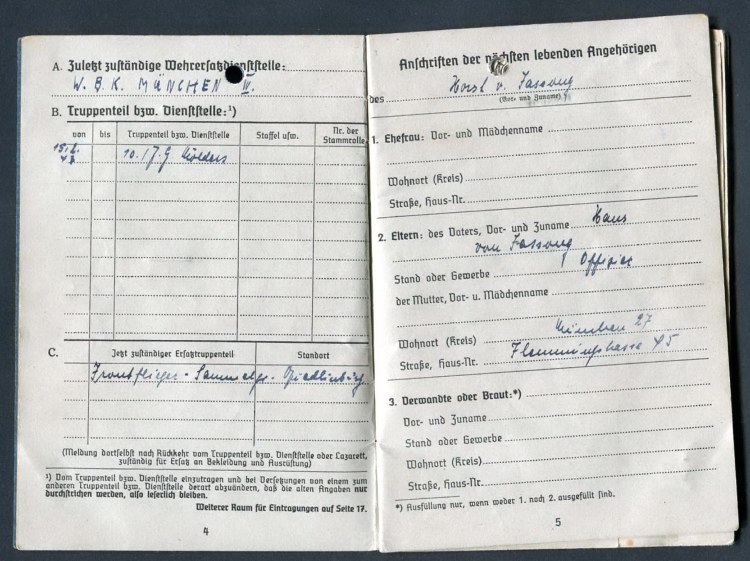 A. Zuletzt zuständige Wehrersatzdienststelle:
W.B.K. MÜNCHEN III.
B. Truppenteil bzw. Dienststelle:¹)
von bis Truppenteil bzw. Dienststelle Staffel usw. Nr. der Stammrolle
10./J.G. Mölders
C. Jetzt zuständiger Ersatztruppenteil Standort
Frontflieger-Sammelgr. Quedlinburg
(Meldung dortselbst nach Rückkehr vom Truppenteil bzw. Dienststelle oder Lazarett,
zuständig für Ersatz an Bekleidung und Ausrüstung)
¹) Vom Truppenteil bzw. Dienststelle einzutragen und bei Versetzungen von einem zum
anderen Truppenteil bzw. Dienststelle derart abzuändern, daß die alten Angaben nur
durchstrichen werden, also leserlich bleiben.
Weiterer Raum für Eintragungen auf Seite 17.
4
Anschriften der nächsten lebenden Angehörigen
des Horst v. Fassong
(Vor- und Zuname)
1. Ehefrau: Vor- und Mädchenname
Wohnort (Kreis)
Straße, Haus-Nr.
2. Eltern: des Vaters, Vor- und Zuname Hans
von Fassong
Stand oder Gewerbe Offizier
der Mutter, Vor- u. Mädchenname
Wohnort (Kreis) München 27
Straße, Haus-Nr. Flemmingstrasse
3. Verwandte oder Braut:*)
Vor- und Zuname
Stand oder Gewerbe
Wohnort (Kreis)
Straße, Haus-Nr.
*) Ausfüllung nur, wenn weder 1. noch 2. ausgefüllt sind.
5